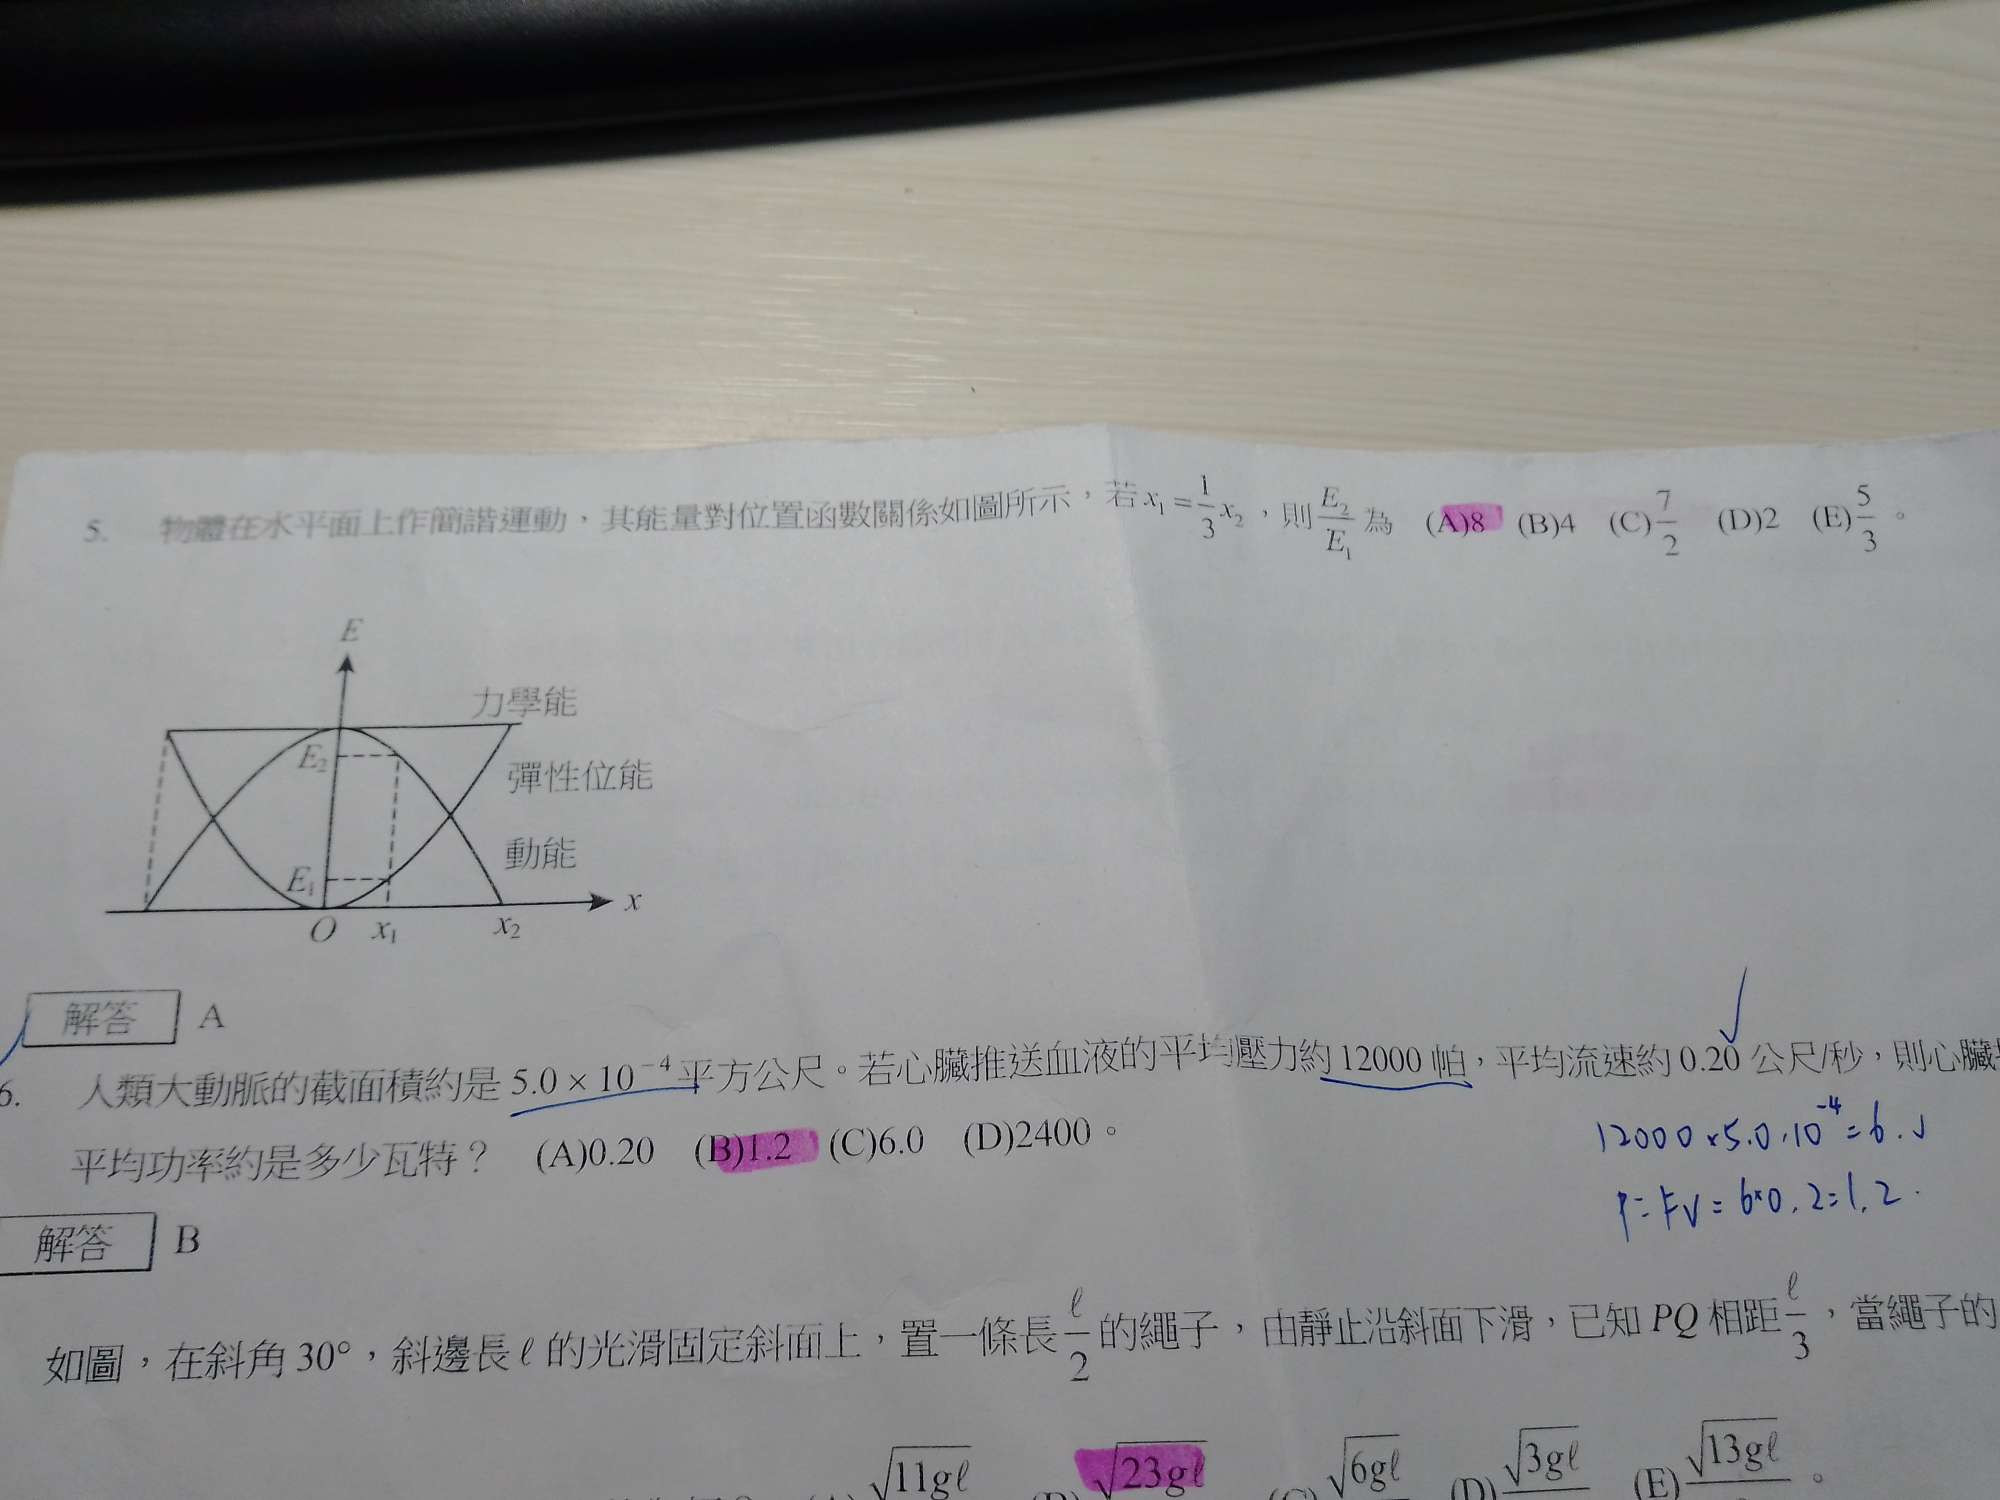 5. 物體在水平面上作簡諧運動，其能量對位置函數關係如圖所示，若 x₁ = 1/3 x₂，則 E₂/E₁ 為 (A)8 (B)4 (C) 7/2 (D)2 (E) 5/3 。
E
力學能
E₂
彈性位能
動能
E₁
x
O x₁ x₂
解答 A
6. 人類大動脈的截面積約是 5.0 × 10⁻⁴ 平方公尺。若心臟推送血液的平均壓力約 12000 帕，平均流速約 0.20 公尺/秒，則心臟
平均功率約是多少瓦特？ (A)0.20 (B)1.2 (C)6.0 (D)2400。
12000 × 5.0 · 10⁻⁴ = 6.
P = FV = 6×0.2 = 1.2.
解答 B
如圖，在斜角 30°，斜邊長 ℓ 的光滑固定斜面上，置一條長 ℓ/2 的繩子，由靜止沿斜面下滑，已知 PQ 相距 ℓ/3，當繩子的
√11gℓ √23gℓ √6gℓ (D) √3gℓ (E) √13gℓ 。